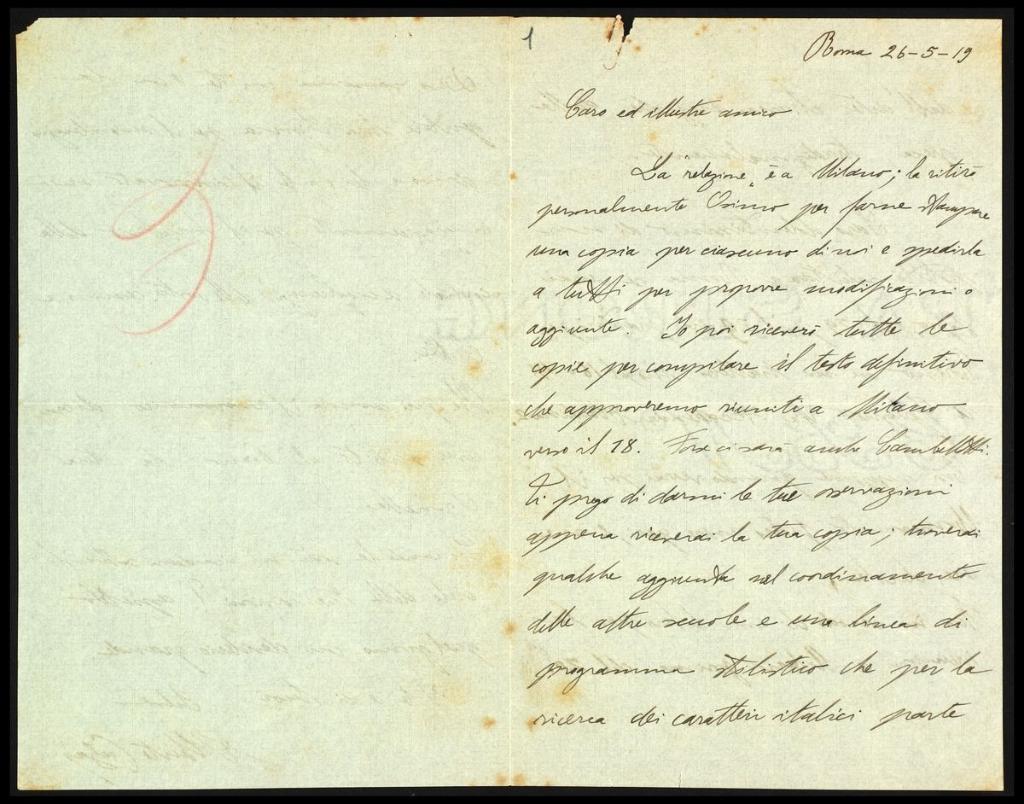 1
Roma 26-5-19
Caro ed illustre amico
La "relazione" è a Milano; la ritirò
personalmente Osimo per farne stampare
una copia per ciascuno di noi e spedirla
a tutti per proporre modificazioni o
aggiunte. Io poi riceverò tutte le
copie per compilare il testo definitivo
che approveremo riuniti a Milano
verso il 18. Forse ci sarà anche Cambellotti.
Ti prego di darmi le tue osservazioni
appena riceverai la tua copia; troverai
qualche aggiunta nel coordinamento
delle altre scuole e una linea di
programma stilistico che per la
ricerca dei caratteri italici parte